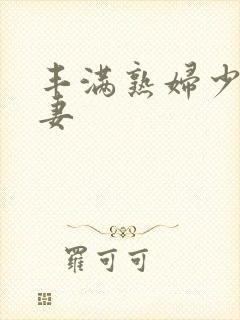 丰满熟婦少
妻
羅可可